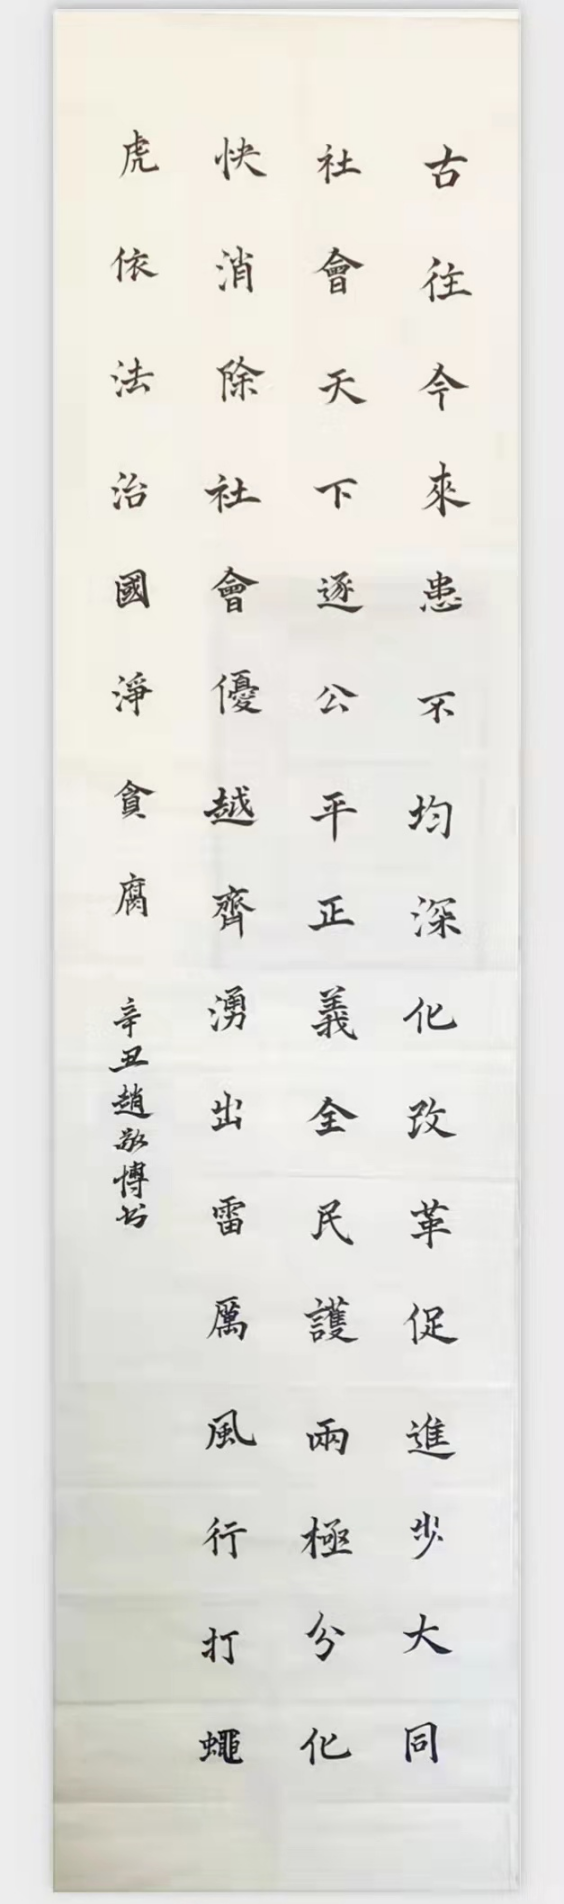 古往今來患不均深化改革促進步大同
社會天下逐公平正義全民護兩極分化
快消除社會優越齊湧出雷厲風行打蠅
虎依法治國淨貪腐
辛丑趙敬博书